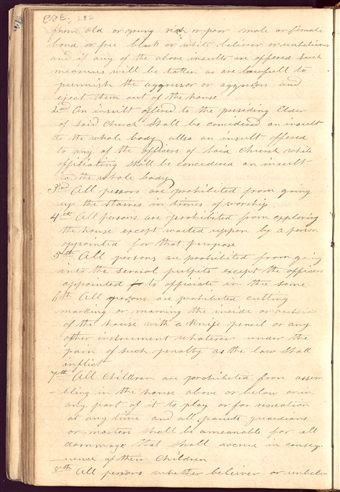 from old or young rich or poor male or female
bond or free black or white believer or unbeliever
and if any of the above insults are offered such
measures will be taken as are lawfull to
punnish the aggressor or aggressors and
eject them out of the house
2nd An insult offerd to the presiding Elder
of said Church shall be concidered an insult
to the whole body allso an insult offered
to any of the officers of Said Church while
officiating shall be concidered an insult
to the whole body
3rd All persons are prohibited from going
up the Staires in times of worship
4th All persons are prohibited from exploring
the house except waited uppon by a person
appointed for that purpose
5th All persons are prohibited from going
into the several pulpets except the officers
appointed to officiate in the same
6th All persons are prohibited cutting
marking or marring the inside or outside
of the house with a knife pencil or any
other instrument whatever under the
pain of such penalty as the law shall
inflict
7th All Children are prohibited from assem
bling in the house above or below or in
any part of it to play or for recreation
at any time and all parents guardians
or masters shall be ameanable for all
dammage that shall accrue in conseq
uence of their Children
8th All persons whether believer or unbeliev